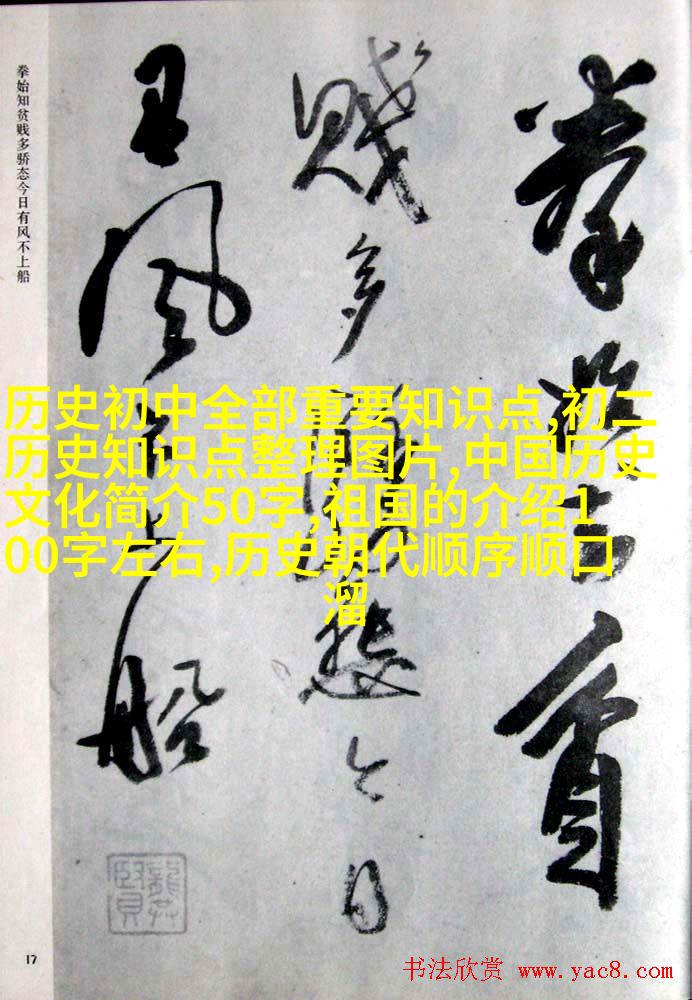 拳始知貧
賤多驕態今日
有風不上船
拳始知贫贱多骄态今日有风不上船
历史初中全部重要知识点,初二
历史知识点整理图片,中国历史
文化简介50字,祖国的介绍1
00字左右,历史朝代顺序顺口
溜
17
书法欣赏 www.yac8.com